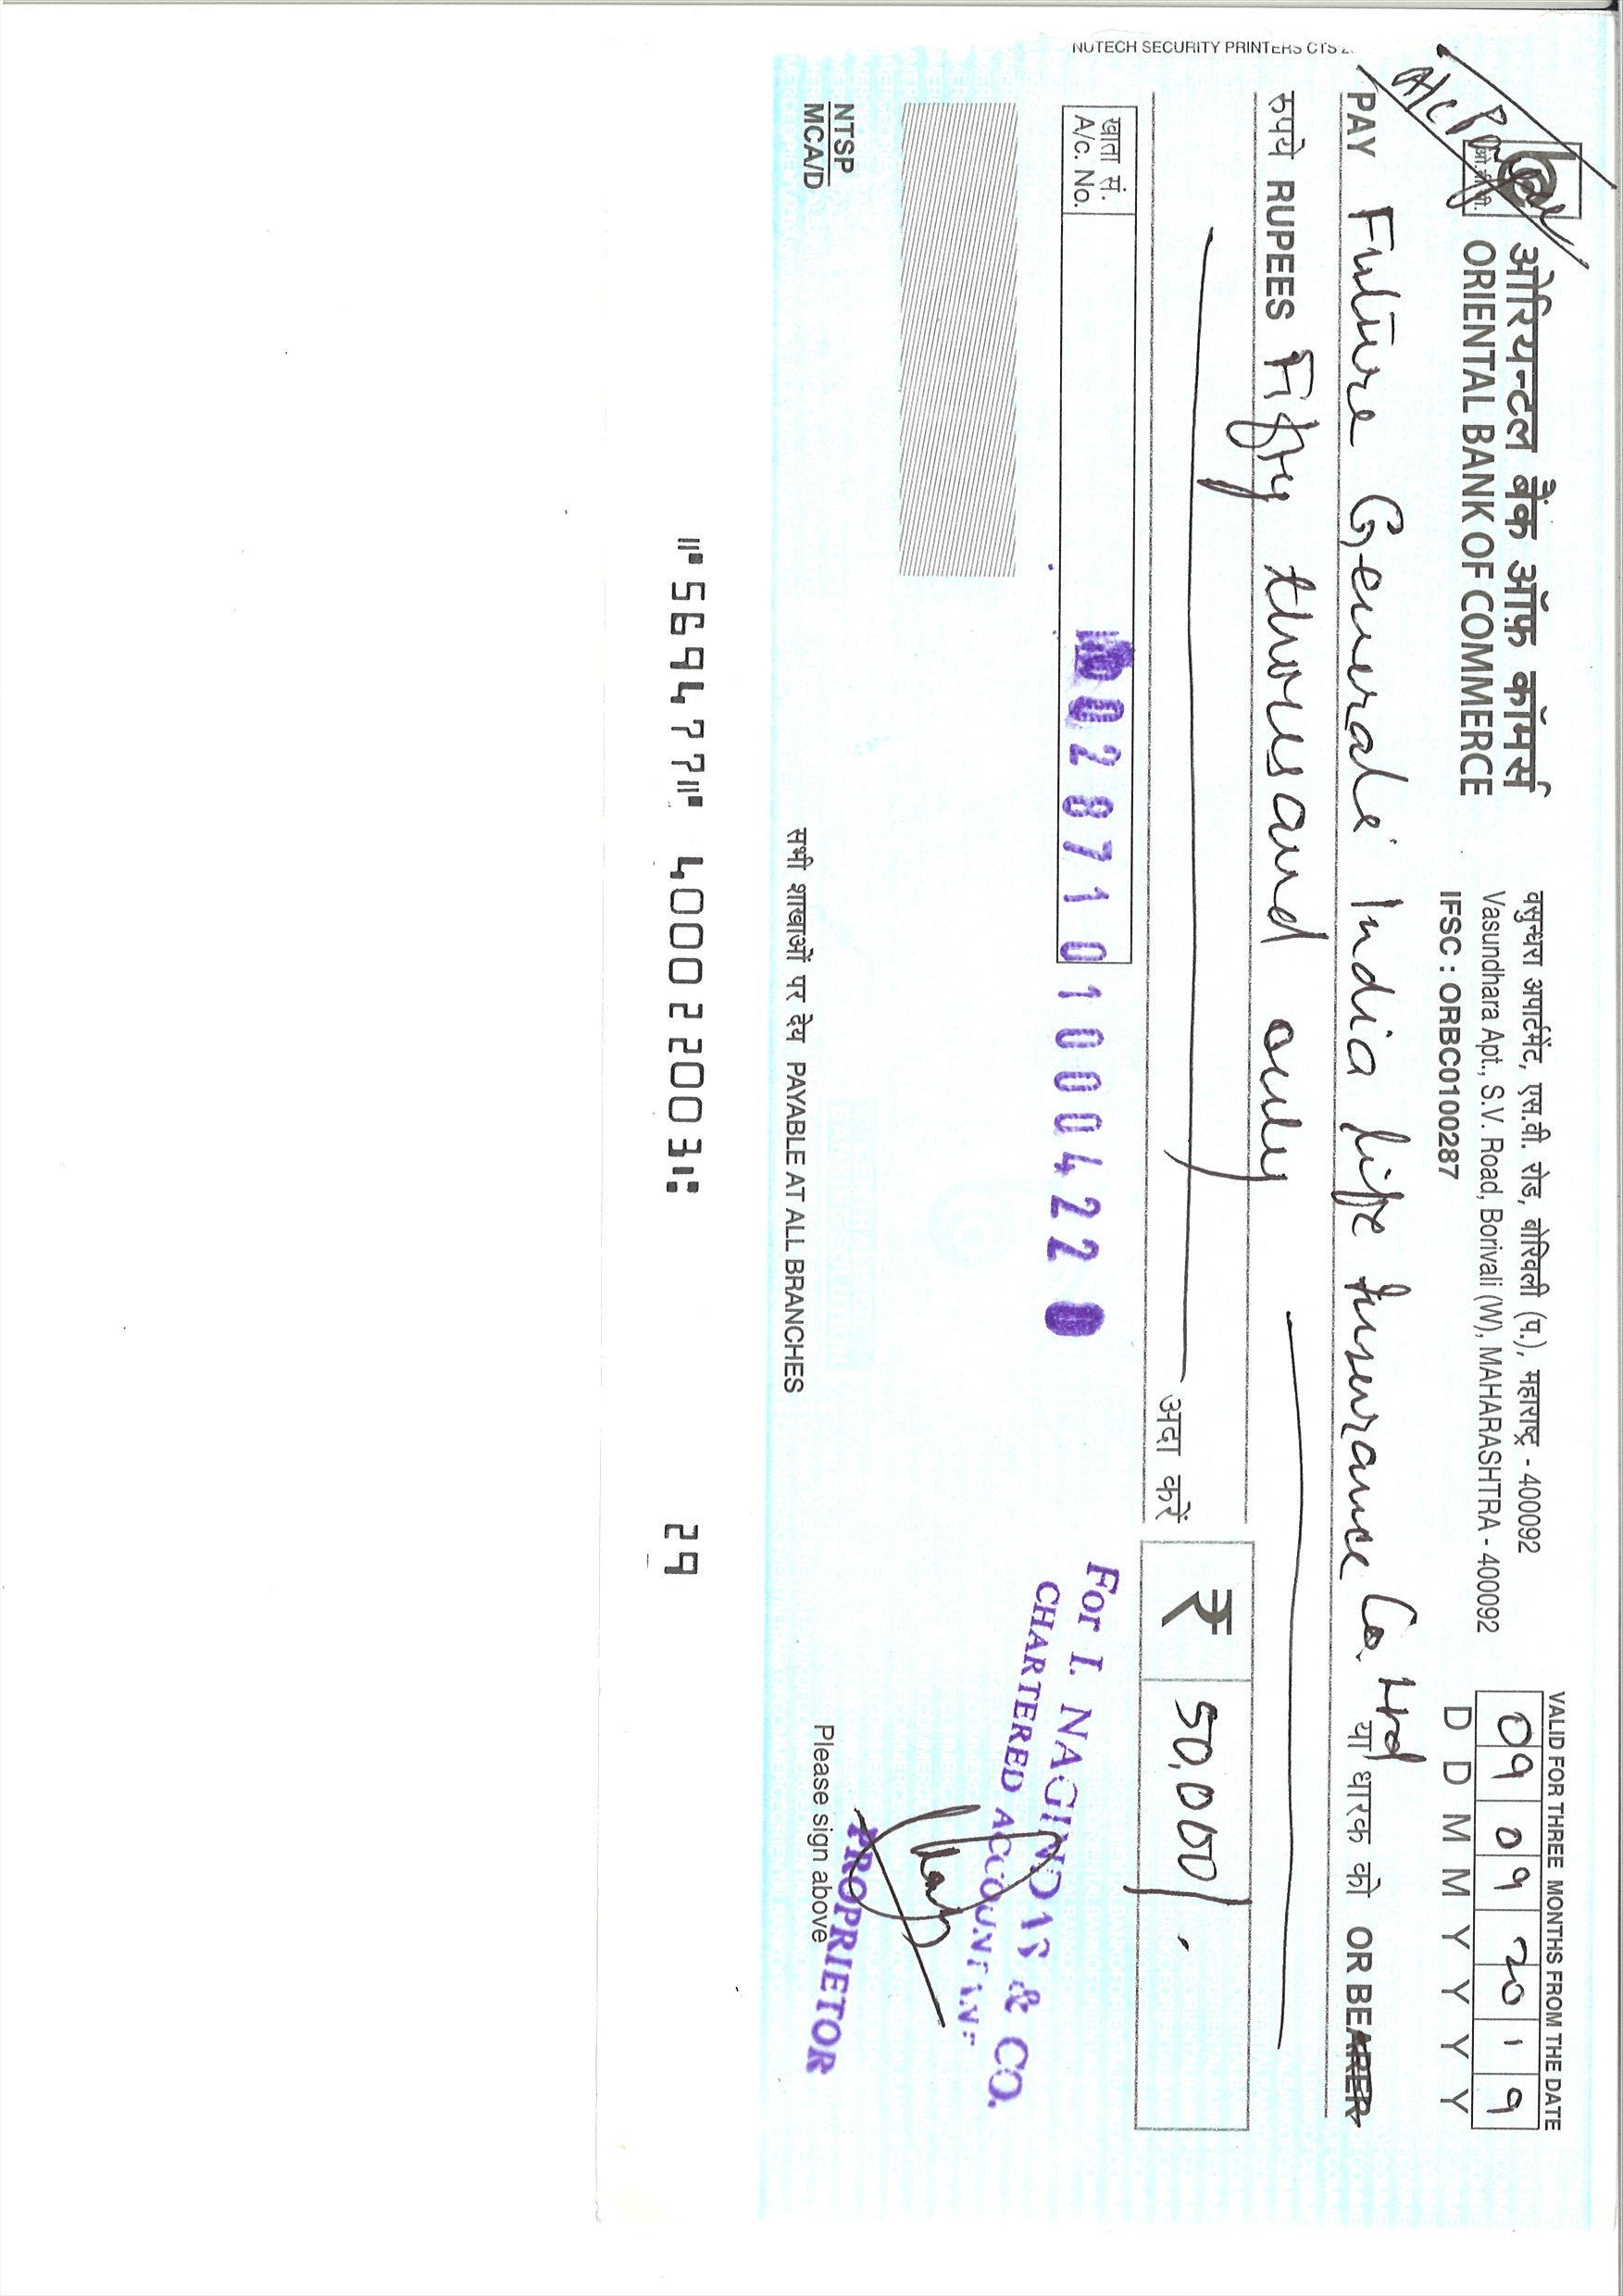 NUTECH SECURITY PRINTERS CTS
A/c Payee
ओ.बी.सी.
ओरियन्टल बैंक ऑफ़ कॉमर्स
ORIENTAL BANK OF COMMERCE
वसुन्धरा अपार्टमेंट, एस.वी. रोड, बोरिवली (प.), महाराष्ट्र - 400092
Vasundhara Apt., S.V. Road, Borivali (W), MAHARASHTRA - 400092
IFSC : ORBC0100287
VALID FOR THREE MONTHS FROM THE DATE
09 09 2019
D D M M Y Y Y Y
PAY Future Generali India Life Insurance Co. Ltd या धारक को OR BEARER
रुपये RUPEES Fifty thousand only
अदा करें ₹ 50,000/-
खाता सं.
A/c. No.
02871010004220
For I. NAGINDAS & CO.
CHARTERED ACCOUNTANT
PROPRIETOR
NTSP
MCA/D
सभी शाखाओं पर देय PAYABLE AT ALL BRANCHES
Please sign above
⑈569477⑈ 400022003⑆ 29